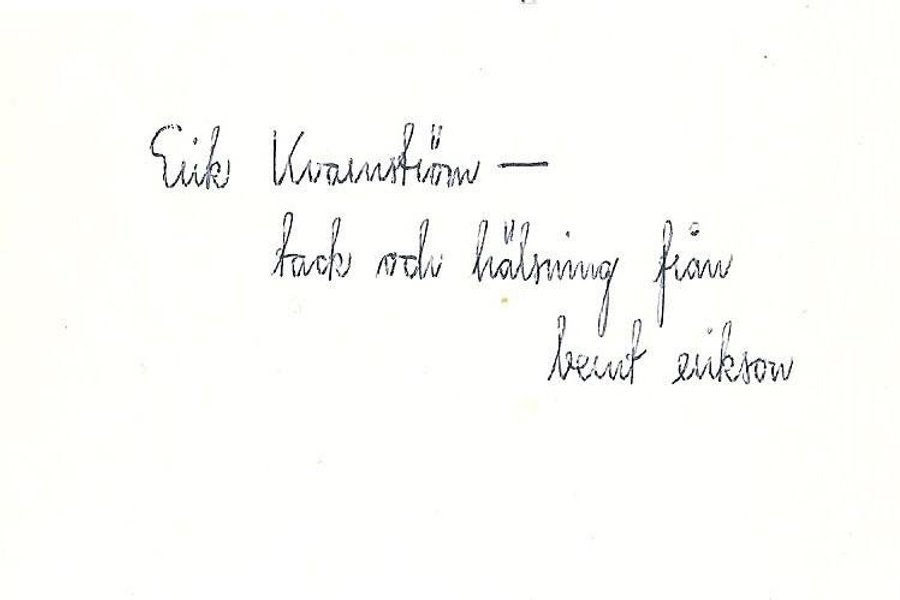 Erik Kvarnström —
tack och hälsning från
bernt erikson